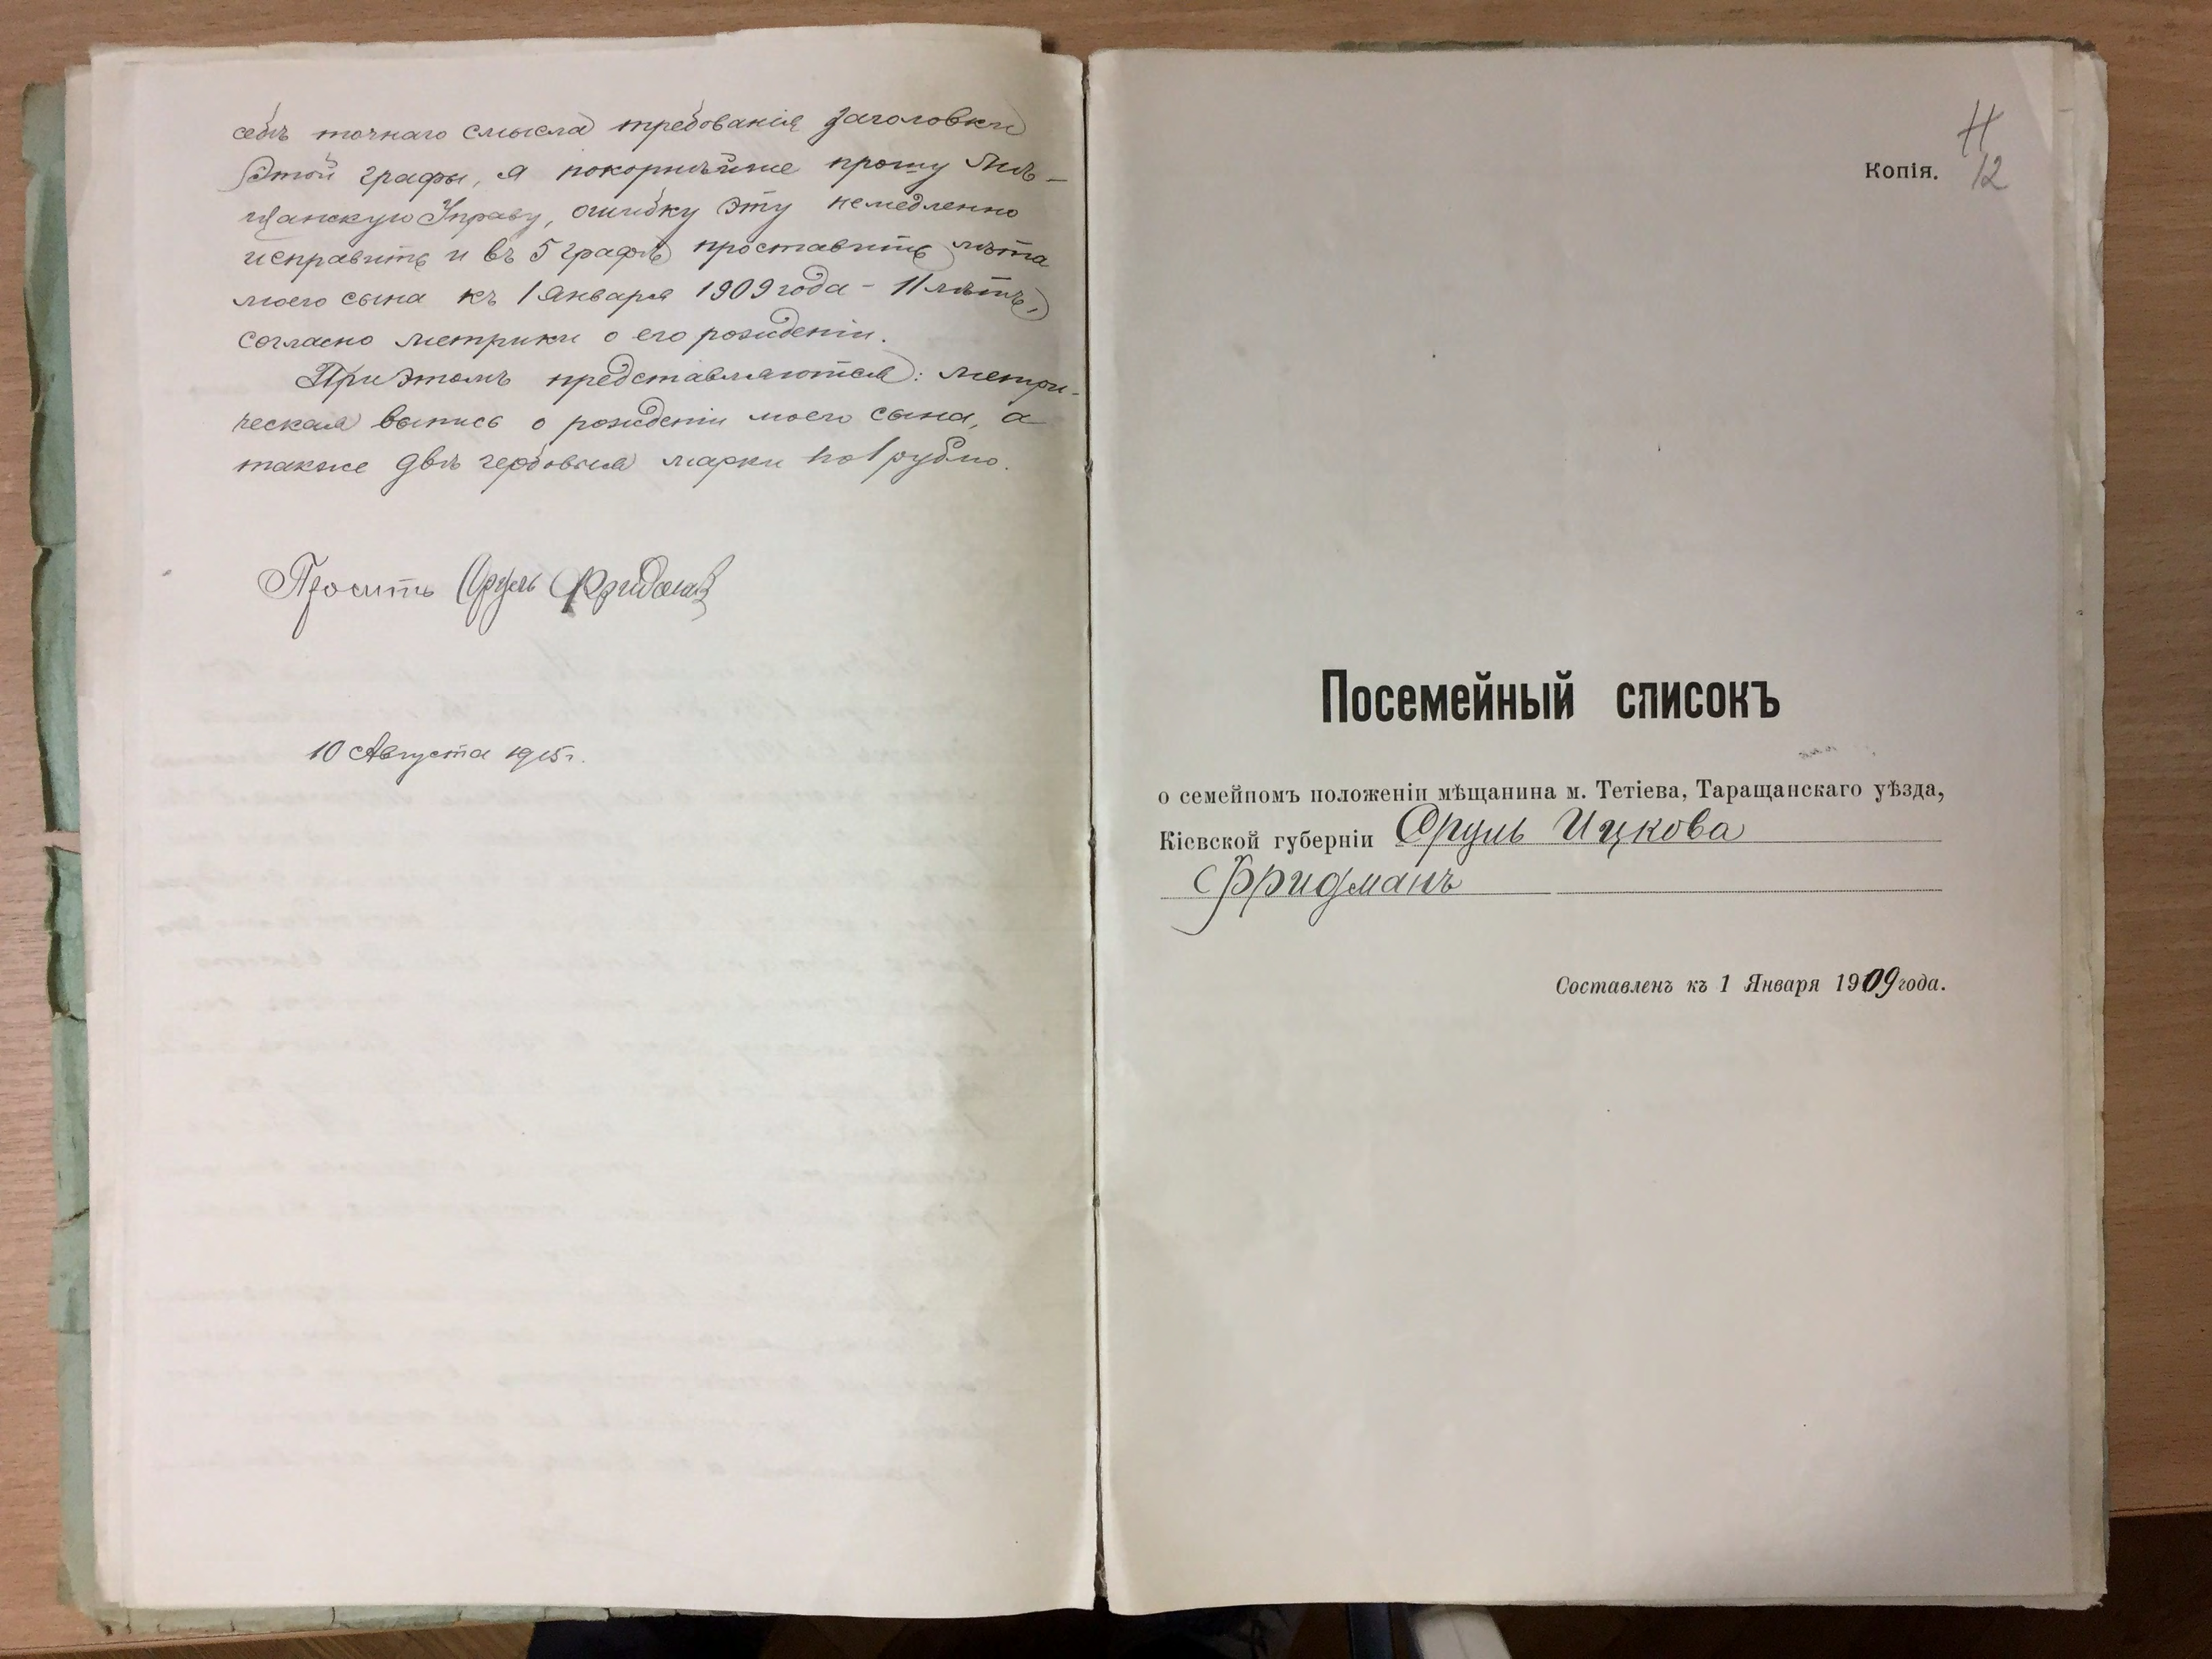 себѣ точнаго смысла требованія заголовки
этой графы, я покорнѣйше прошу Мѣ-
щанскую Управу, ошибку эту немедленно
исправить и въ 5 графѣ проставить лѣта
моего сына къ 1 Января 1909 года - 11 лѣтъ,
согласно метрики о его рожденіи.
При этомъ представляются: метри-
ческая выпись о рожденіи моего сына, а
также двѣ гербовыя марки по 1 рублю.
Проситъ Сруль Фридманъ
10 Августа 1915 г.
12
Копія.
Посемейный списокъ
о семейномъ положеніи мѣщанина м. Тетіева, Таращанскаго уѣзда,
Кіевской губерніи Сруль Ицкова
Фридманъ
Составленъ къ 1 Января 1909 года.